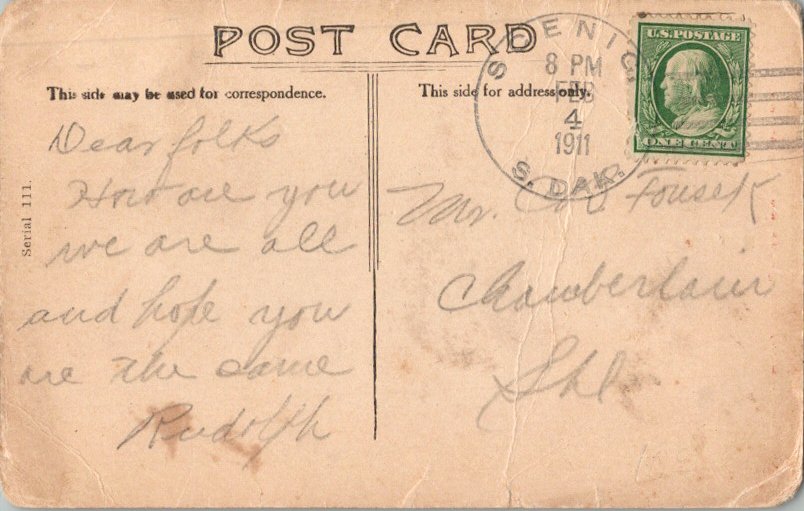 POST CARD
This side may be used for correspondence.
This side for address only.
SCENIC,
8 PM
FEB
4
1911
S. DAK.
U.S. POSTAGE
ONE CENT
Serial 111.
Dear folks
How are you
we are all
and hope you
are the same
Rudolph
Mr. Fousek
Chamberlain